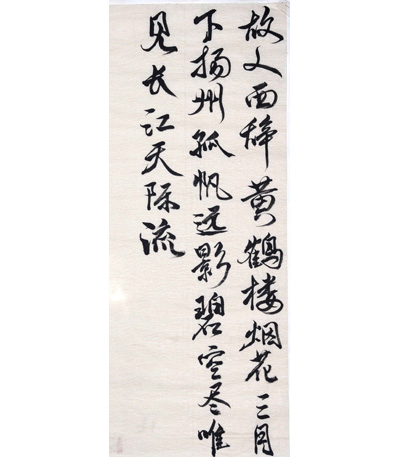 故人西辞黄鹤楼烟花三月
下扬州孤帆远影碧空尽唯
见长江天际流